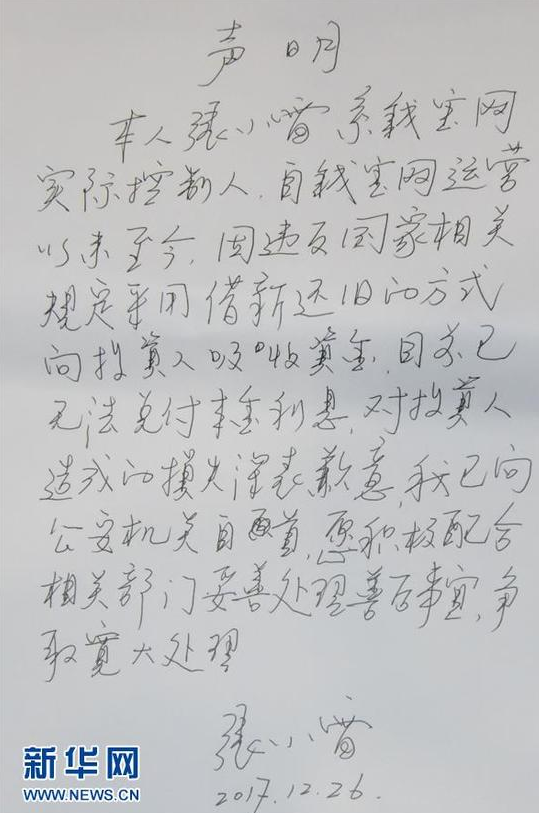 声明
本人張小雷系钱宝网
实际控制人,自钱宝网运营
以来至今,因违反国家相关
规定采用借新还旧的方式
向投資人吸收資金,目前已
无法兑付本金利息,对投資人
造成的损失深表歉意,我已向
公安机关自首,愿积极配合
相关部门妥善处理善后事宜,争
取寬大处理
張小雷
2017.12.26.
新华网
WWW.NEWS.CN